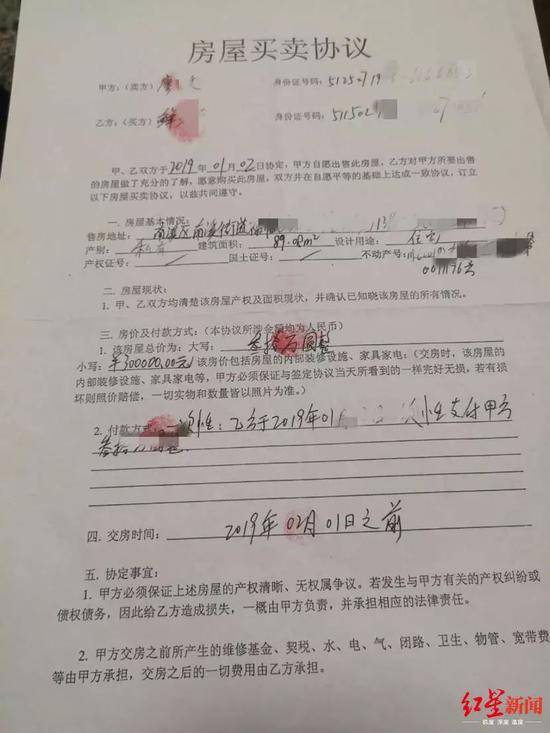 房屋买卖协议
甲方：（卖方） 身份证号码：51250719
乙方：（买方） 身份证号码：511502
甲、乙双方于2019年01月02日协定，甲方自愿出售此房屋，乙方对甲方所要出售
的房屋做了充分的了解，愿意购买此房屋，双方并在自愿平等的基础上达成一致协议，订立
以下房屋买卖协议，以兹共同遵守。
一. 房屋基本情况：
售房地址：南溪区南溪街道
产别： 建筑面积：89.08m² 设计用途：住宅
产权证号： 国土证号： 不动产号：
0011176号
二. 房屋现状：
1. 甲、乙双方均清楚该房屋产权及面积现状，并确认已知晓该房屋的所有情况。
三. 房价及付款方式：（本协议所涉金额均为人民币）
1. 该房屋总价为：大写：叁拾万圆整
小写：¥300000.00元 该房价包括房屋的内部装修设施、家具家电；（交房时，该房屋的
内部装修设施、家具家电等，甲方必须保证与签定协议当天所看到的一样完好无损，若有损
坏则照价赔偿，一切实物和数量皆以照片为准。）
2. 付款方式：一次性：乙方于2019年01 性支付甲方
叁拾万圆整
四. 交房时间：2019年02月01日之前
五. 协定事宜：
1. 甲方必须保证上述房屋的产权清晰、无权属争议。若发生与甲方有关的产权纠纷或
债权债务，因此给乙方造成损失，一概由甲方负责，并承担相应的法律责任。
2. 甲方交房之前所产生的维修基金、契税、水、电、气、闭路、卫生、物管、宽带费
等由甲方承担，交房之后的一切费用由乙方承担。
红星新闻
锐度 深度 温度